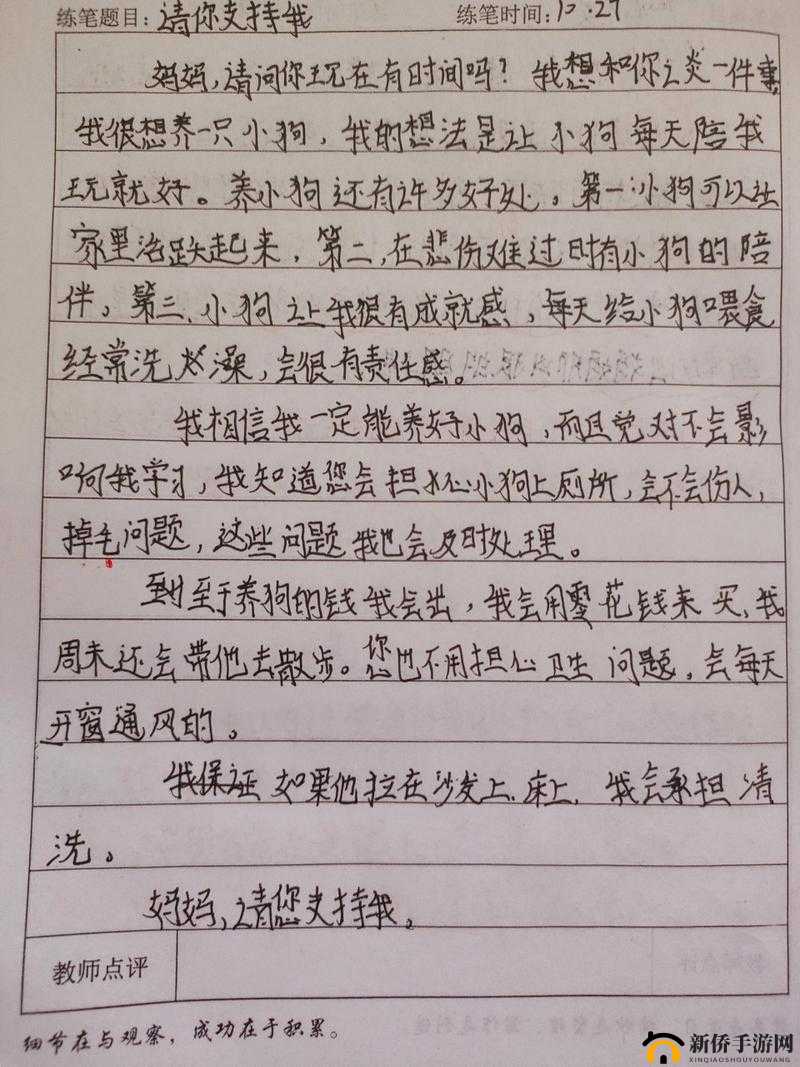 练笔题目：请你支持我 练笔时间：10.27
妈妈，请问你现在有时间吗？我想和你谈一件事，
我很想养一只小狗，我的想法是让小狗每天陪我
玩就好。养小狗还有许多好处，第一：小狗可以让
家里活跃起来，第二，在悲伤难过时有小狗的陪
伴。第三，小狗让我很有成就感，每天给小狗喂食
经常洗澡，会很有责任感。
我相信我一定能养好小狗，而且绝对不会影
响我学习，我知道您会担心小狗上厕所，会不会伤人，
掉毛问题，这些问题我也会及时处理。
至于养狗的钱我会出，我会用零花钱来买，我
周末还会带他去散步。您也不用担心卫生问题，会每天
开窗通风的。
我保证如果他拉在沙发上、床上，我会承担清
洗。
妈妈，请您支持我。
教师点评
细节在与观察，成功在于积累。
新侨手游网
XINQIAOSHOUYOUWANG